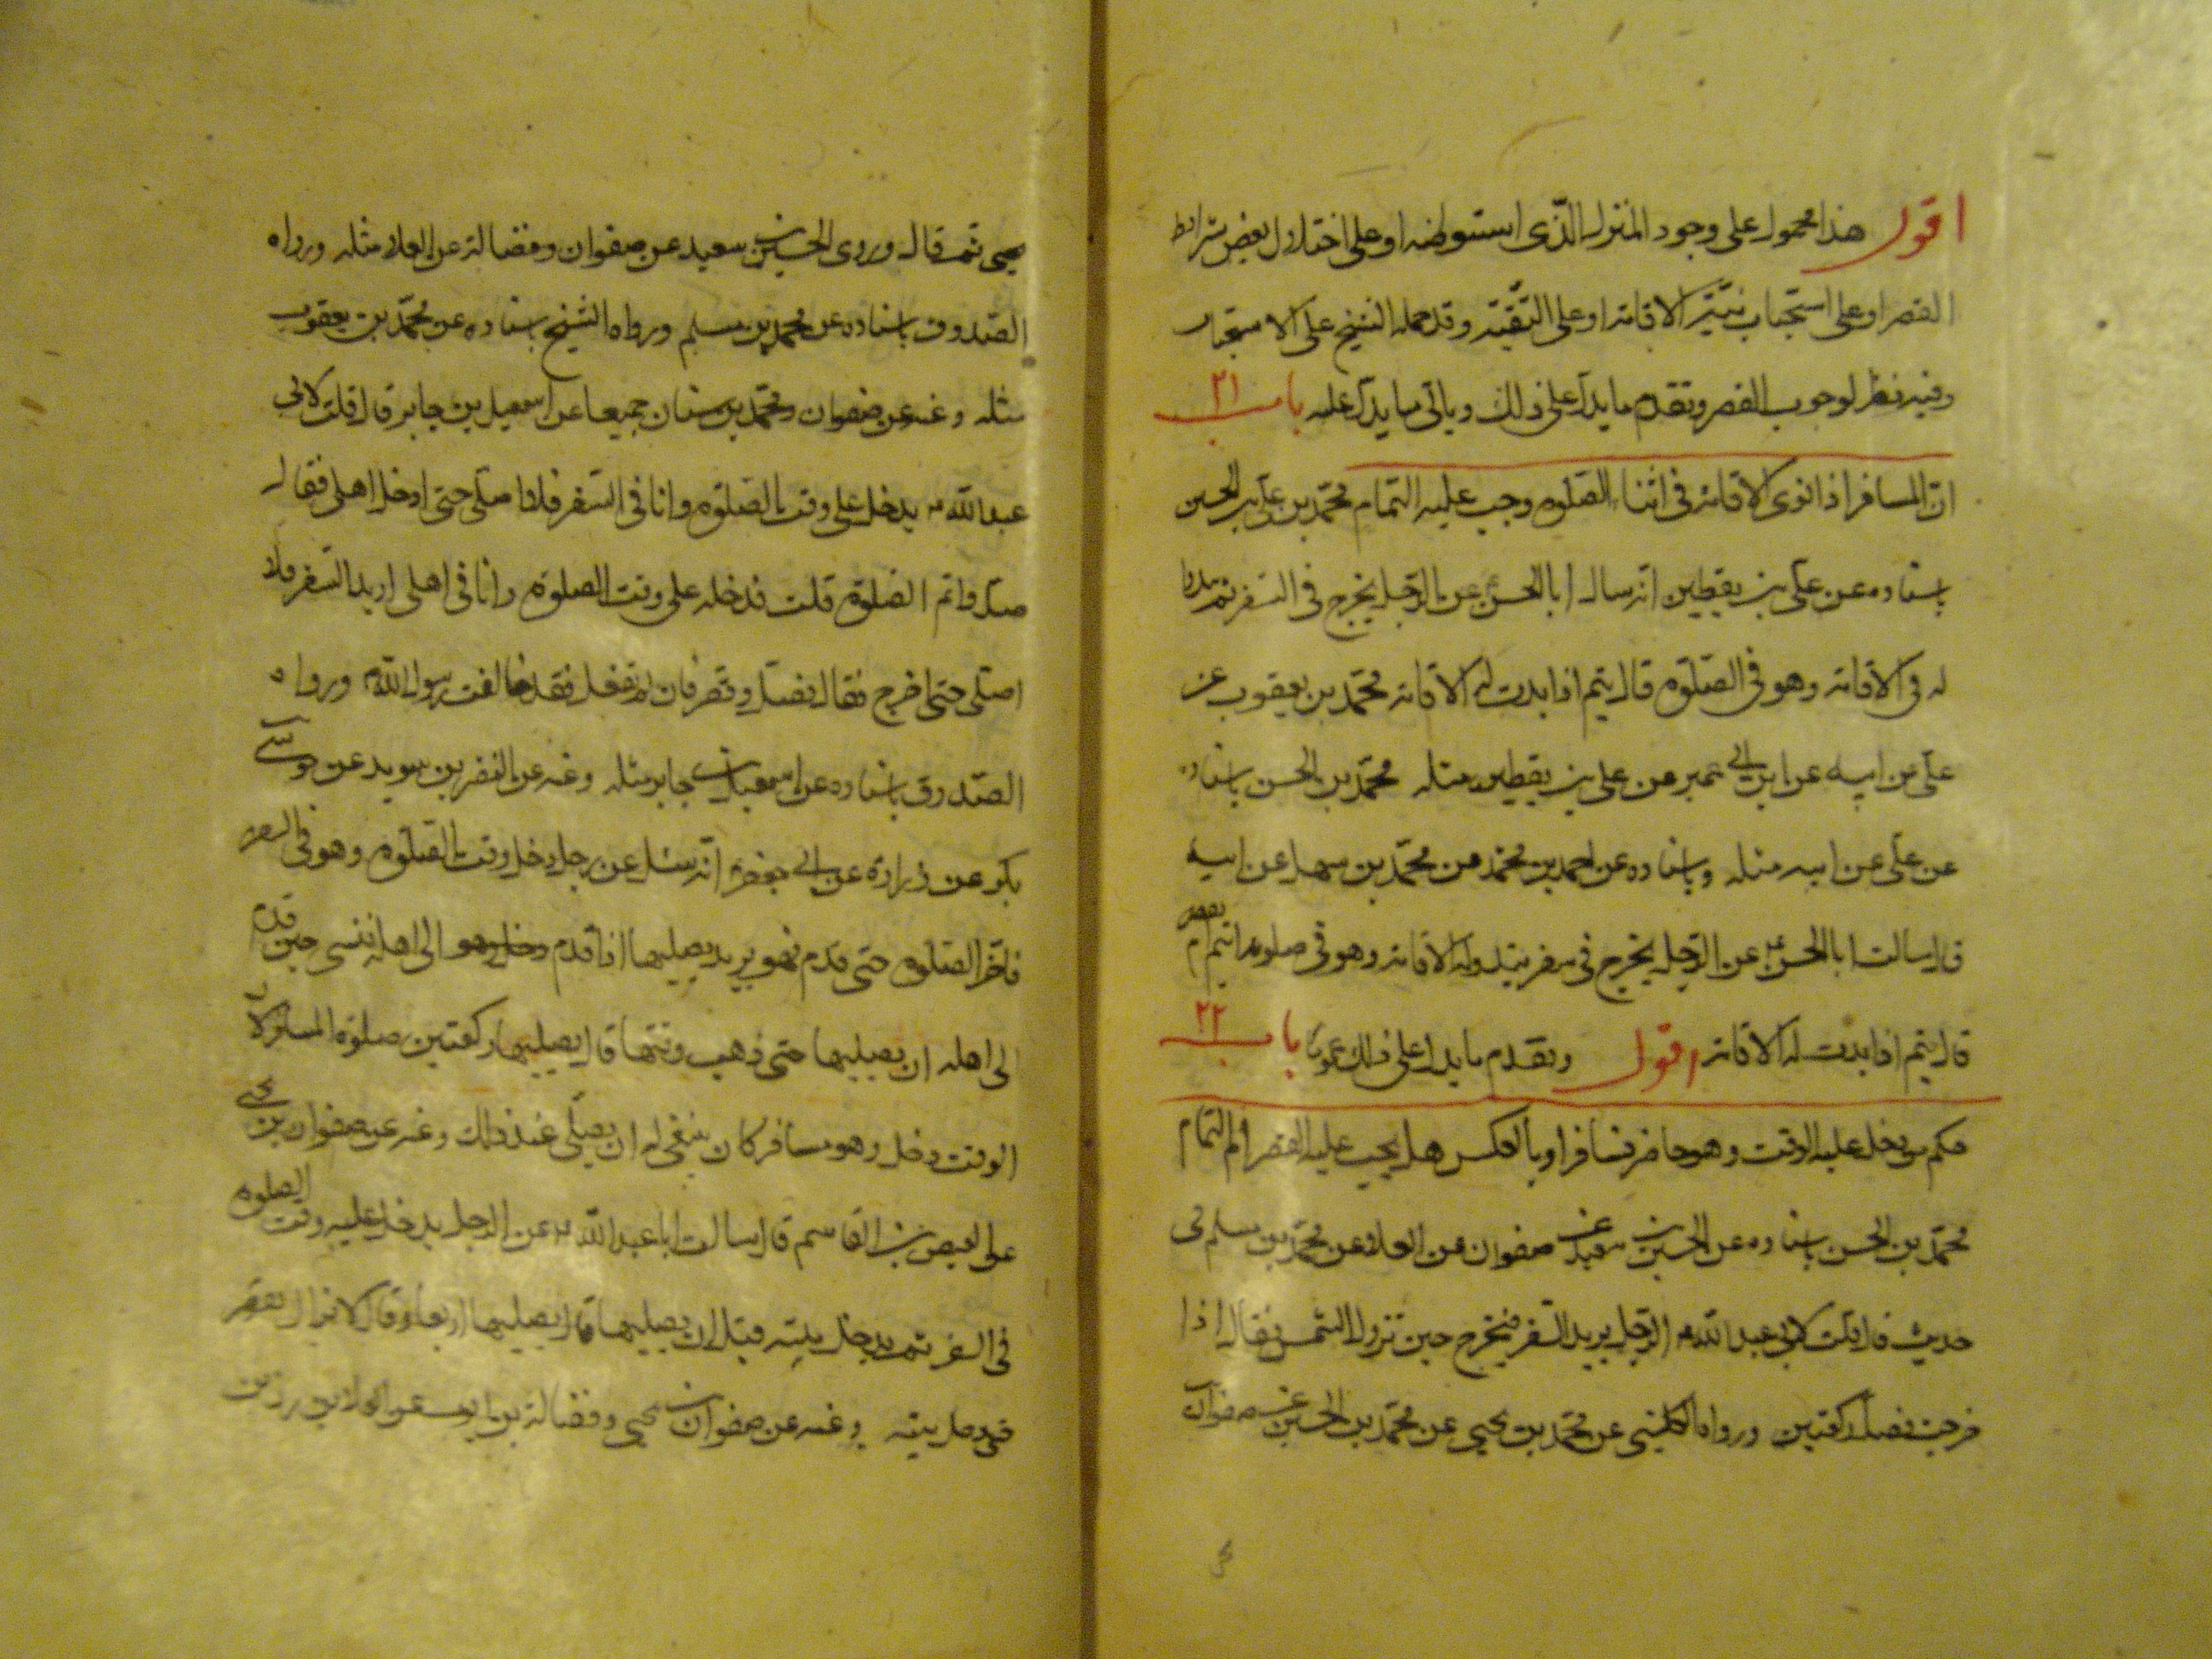 اقول هذا محمول على وجود المنزل الذى استوطنه او على اختلال بعض شرائط
القصر او على استحباب نيّة الاقامة او على التقيّة وقد حمله الشيخ على الاستحباب
وفيه نظر لوجوب القصر وتقدم ما يدل على ذلك وياتى ما يدل عليه باب ٢١
ان المسافر اذا نوى الاقامة فى اثناء الصلوة وجب عليه التمام محمد بن على بن الحسين
باسناده عن على بن يقطين انه سال ابا الحسن ع عن الرجل يخرج فى السفر ثم يبدو
له فى الاقامة وهو فى الصلوة قال يتم اذا بدت له الاقامة محمد بن يعقوب عن
على عن ابيه عن ابن ابى عمير عن على بن يقطين مثله محمد بن الحسن باسناده
عن على عن ابيه مثله وباسناده عن احمد بن محمد عن محمد بن سهل عن ابيه
قال سالت ابا الحسن ع عن الرجل يخرج فى سفر تبدو له الاقامة وهو فى صلوته ايتم ام يقصر
قال يتم اذا بدت له الاقامة اقول وتقدم ما يدل على ذلك عموما باب ٢٢
حكم من دخل عليه الوقت وهو حاضر فسافر او بالعكس هل يجب عليه القصر ام التمام
محمد بن الحسن باسناده عن الحسين بن سعيد عن صفوان عن العلا عن محمد بن مسلم فى
حديث قال قلت لابى عبد الله ع الرجل يريد السفر فيخرج حين تزول الشمس فقال اذا
خرجت فصل ركعتين ورواه الكلينى عن محمد بن يحيى عن محمد بن الحسين عن صفوان
يحيى ثم قال وروى الحسين بن سعيد عن صفوان وفضالة عن العلا مثله ورواه
الصدوق باسناده عن محمد بن مسلم ورواه الشيخ باسناده عن محمد بن يعقوب
مثله وعنه عن صفوان ومحمد بن سنان جميعا عن اسمعيل بن جابر قال قلت لابى
عبد الله ع يدخل على وقت الصلوة وانا فى السفر فلا اصلى حتى ادخل اهلى فقال
صل واتم الصلوة قلت فدخل على وقت الصلوة وانا فى اهلى اريد السفر فلا
اصلى حتى اخرج فقال فصل وقصر فان لم تفعل فقد خالفت رسول الله ورواه
الصدوق باسناده عن اسمعيل بن جابر مثله وعنه عن النضر بن سويد عن موسى
بكر عن زرارة عن ابى جعفر ع انه سئل عن رجل دخل وقت الصلوة وهو فى السفر
فاخر الصلوة حتى قدم فهو يريد يصليها اذا قدم الى اهله فنسى حين قدم
الى اهله ان يصليها حتى ذهب وقتها قال يصليها ركعتين صلوة المسافر لان
الوقت دخل وهو مسافر كان ينبغى له ان يصلى عند ذلك وعنه عن صفوان بن يحيى
على العيص بن القاسم قال سالت ابا عبد الله ع عن الرجل يدخل عليه وقت الصلوة
فى السفر ثم يدخل بيته قبل ان يصليها قال يصليها اربعا وقال لا يزال يقصر
حتى يدخل بيته وعنه عن صفوان بن يحيى وفضالة بن ايوب عن العلا بن رزين